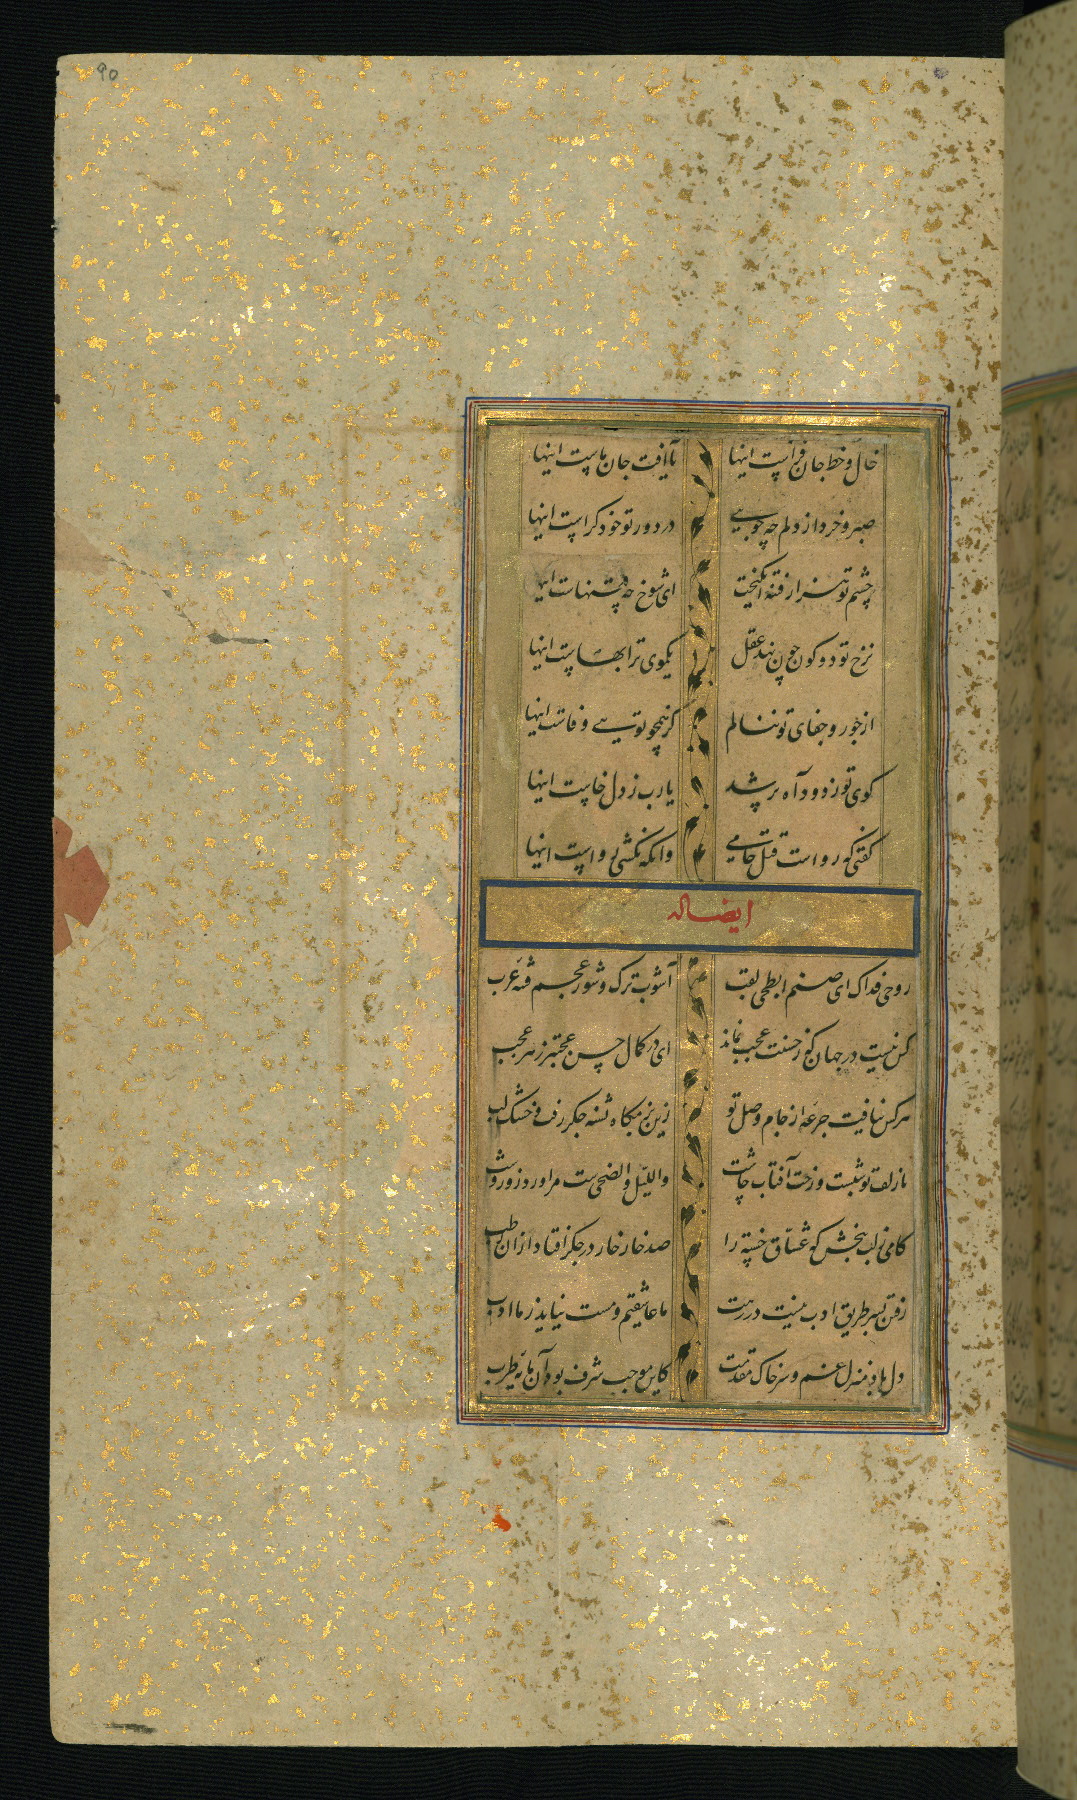 90
خال و خط جان فزاست اینها یا آفت جان ماست اینها
صبر و خرد از دلم چه جویی در دور تو خود کراست اینها
چشم تو هزار فتنه انگیخت ای شوخ چه فتنهاست اینها
نرخ تو دو کون چون نهد عقل یکموی ترا بهاست اینها
از جور و جفای تو ننالم کز همچو تویی وفاست اینها
کوی تو ز دود آه پر شد یارب ز دل خاست اینها
گفتی که رواست قتل جامی وانگه نکشی رواست اینها
ایضا له
روحی فداک ای صنم ابطحی لقب آشوب ترک و شور عجم فتنه عرب
کس نیست در جهان که ز حسنت عجب نماند ای در کمال حسن عجبتر ز هر عجب
هرکس نیافت جرعه از جام وصل تو زین بزمگاه تشنه جگر رفت و خشک لب
تا زلف تو شبست و رخت آفتاب چاشت واللیل والضحی ست مرا ورد روز و شب
کامی ز لب ببخش که عشاق خسته را صد خار خار در جگر افتاد از ان طلب
رفتن بسر طریق ادب نیست در رهت ما عاشقیم و مست نیاید ز ما ادب
دل باد منزل غم و سر خاک مقدمت کاین موجب شرف بود آن مایه طرب